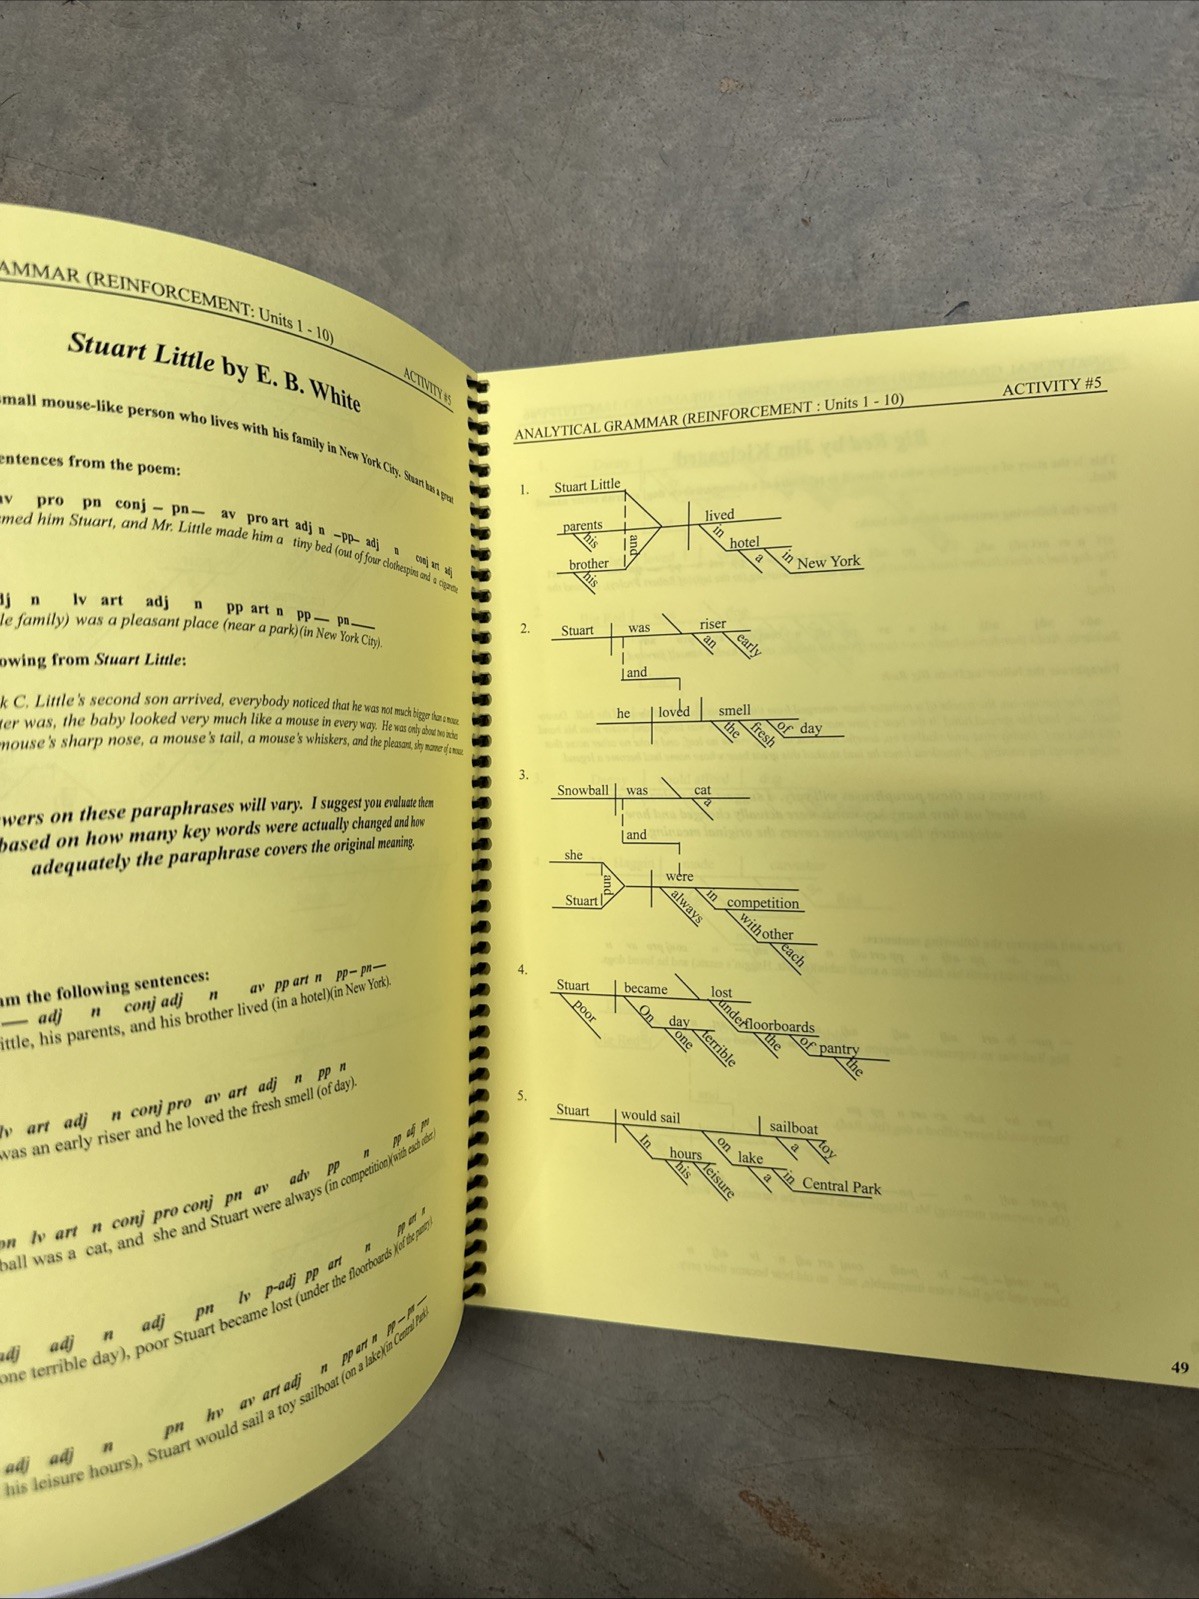 AMMAR (REINFORCEMENT: Units 1 - 10)
ACTIVITY #5
Stuart Little by E. B. White
small mouse-like person who lives with his family in New York City. Stuart has a great
entences from the poem:
av pro pn conj – pn— av pro art adj n –pp– adj n conj art adj
med him Stuart, and Mr. Little made him a tiny bed (out of four clothespins and a cigarette
dj n lv art adj n pp art n pp— pn—
le family) was a pleasant place (near a park)(in New York City).
owing from Stuart Little:
k C. Little's second son arrived, everybody noticed that he was not much bigger than a mouse.
ter was, the baby looked very much like a mouse in every way. He was only about two inches
mouse's sharp nose, a mouse's tail, a mouse's whiskers, and the pleasant, shy manner of a mouse.
wers on these paraphrases will vary. I suggest you evaluate them
based on how many key words were actually changed and how
adequately the paraphrase covers the original meaning.
am the following sentences:
— adj n conj adj n av pp art n pp– pn—
ittle, his parents, and his brother lived (in a hotel)(in New York).
lv art adj n conj pro av art adj n pp n
was an early riser and he loved the fresh smell (of day).
pn lv art n conj pro conj pn av adv pp n pp adj pro
ball was a cat, and she and Stuart were always (in competition)(with each other.)
adj adj n adj pn lv p-adj pp art n pp art n
one terrible day), poor Stuart became lost (under the floorboards )(of the pantry)
adj adj n pn hv av art adj n pp art n pp – pn —
his leisure hours), Stuart would sail a toy sailboat (on a lake)(in Central Park).
ANALYTICAL GRAMMAR (REINFORCEMENT : Units 1 - 10)
ACTIVITY #5
1.
Stuart Little
parents
his
brother
his
and
lived
in
hotel
a
in
New York
2.
Stuart
was
riser
an
early
and
he
loved
smell
the
fresh
of
day
3.
Snowball
was
cat
a
and
she
and
Stuart
were
always
in
competition
with
other
each
4.
Stuart
poor
became
lost
On
day
one
terrible
under
floorboards
the
of
pantry
the
5.
Stuart
would sail
sailboat
a
toy
In
hours
his
leisure
on
lake
a
in
Central Park
49